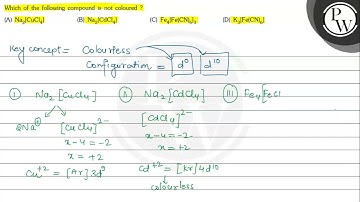 Which of the following compound is not coloured ?
(A) Na₂[CuCl₄] (B) Na₂[CdCl₄] (C) Fe₄[Fe(CN)₆]₃ (D) K₃[Fe(CN)₆]
Key concept = Colourless
Configuration = d⁰ d¹⁰
I Na₂[CuCl₄] II Na₂[CdCl₄] III Fe₄[Fe(
2Na⁺ [CuCl₄]²⁻ [CdCl₄]²⁻
x-4 = -2 x-4 = -2
x = +2 x = +2
Cu⁺² = [Ar]3d⁹ Cd⁺² = [Kr]4d¹⁰
colourless